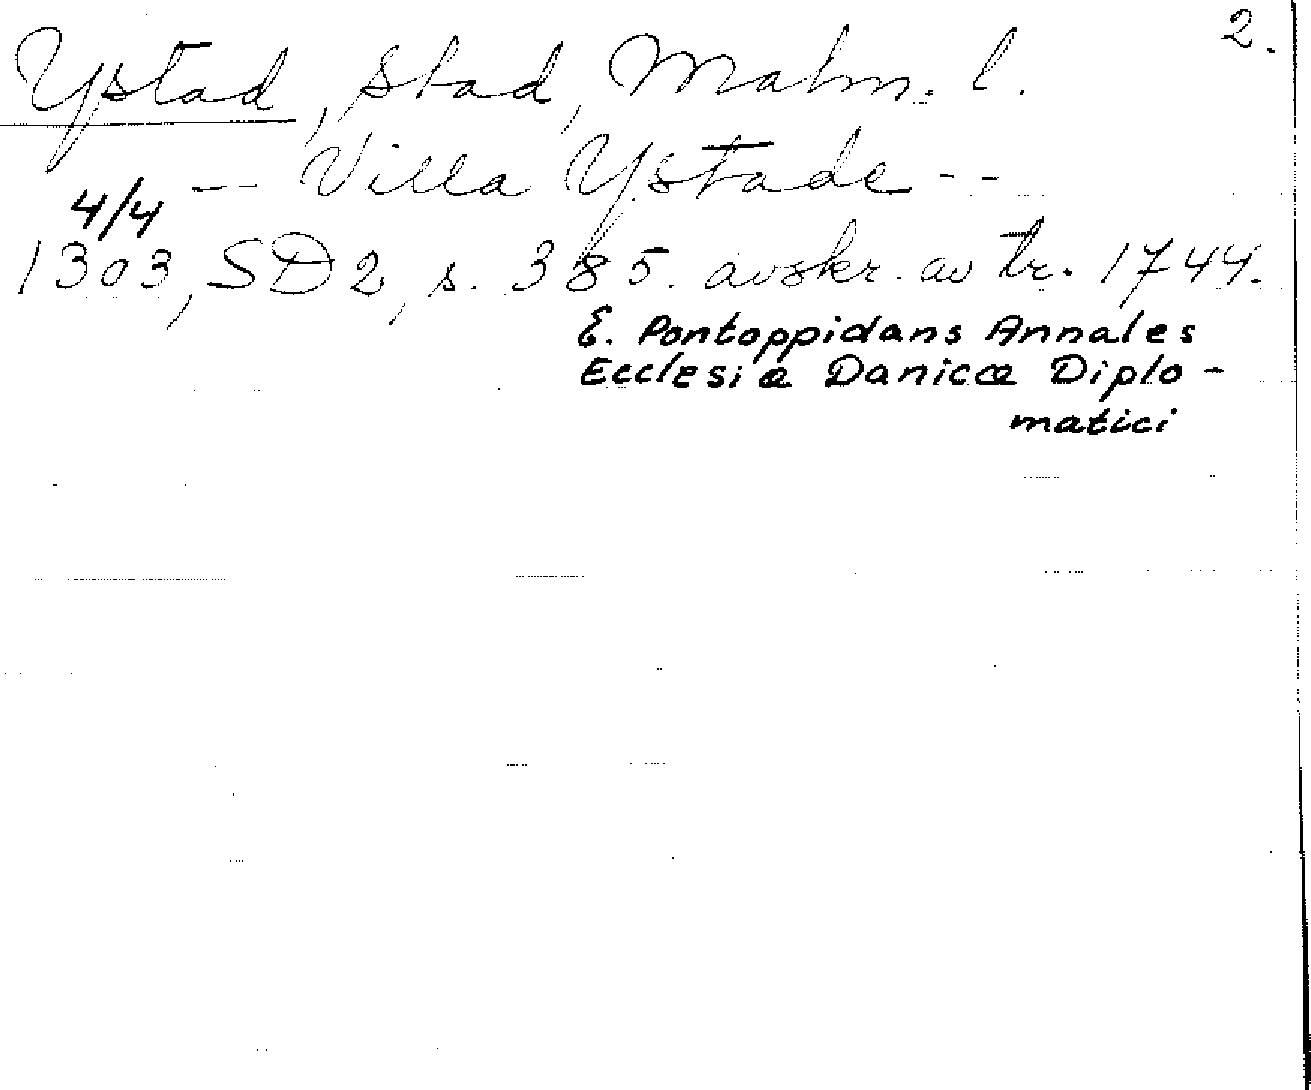 2.
Ystad, stad, Malm. l.
-- Villa Ystade --
4/4
1303, SD 2, s. 385. avskr. av tr. 1744.
E. Pontoppidans Annales
Ecclesiæ Danicæ Diplo-
matici